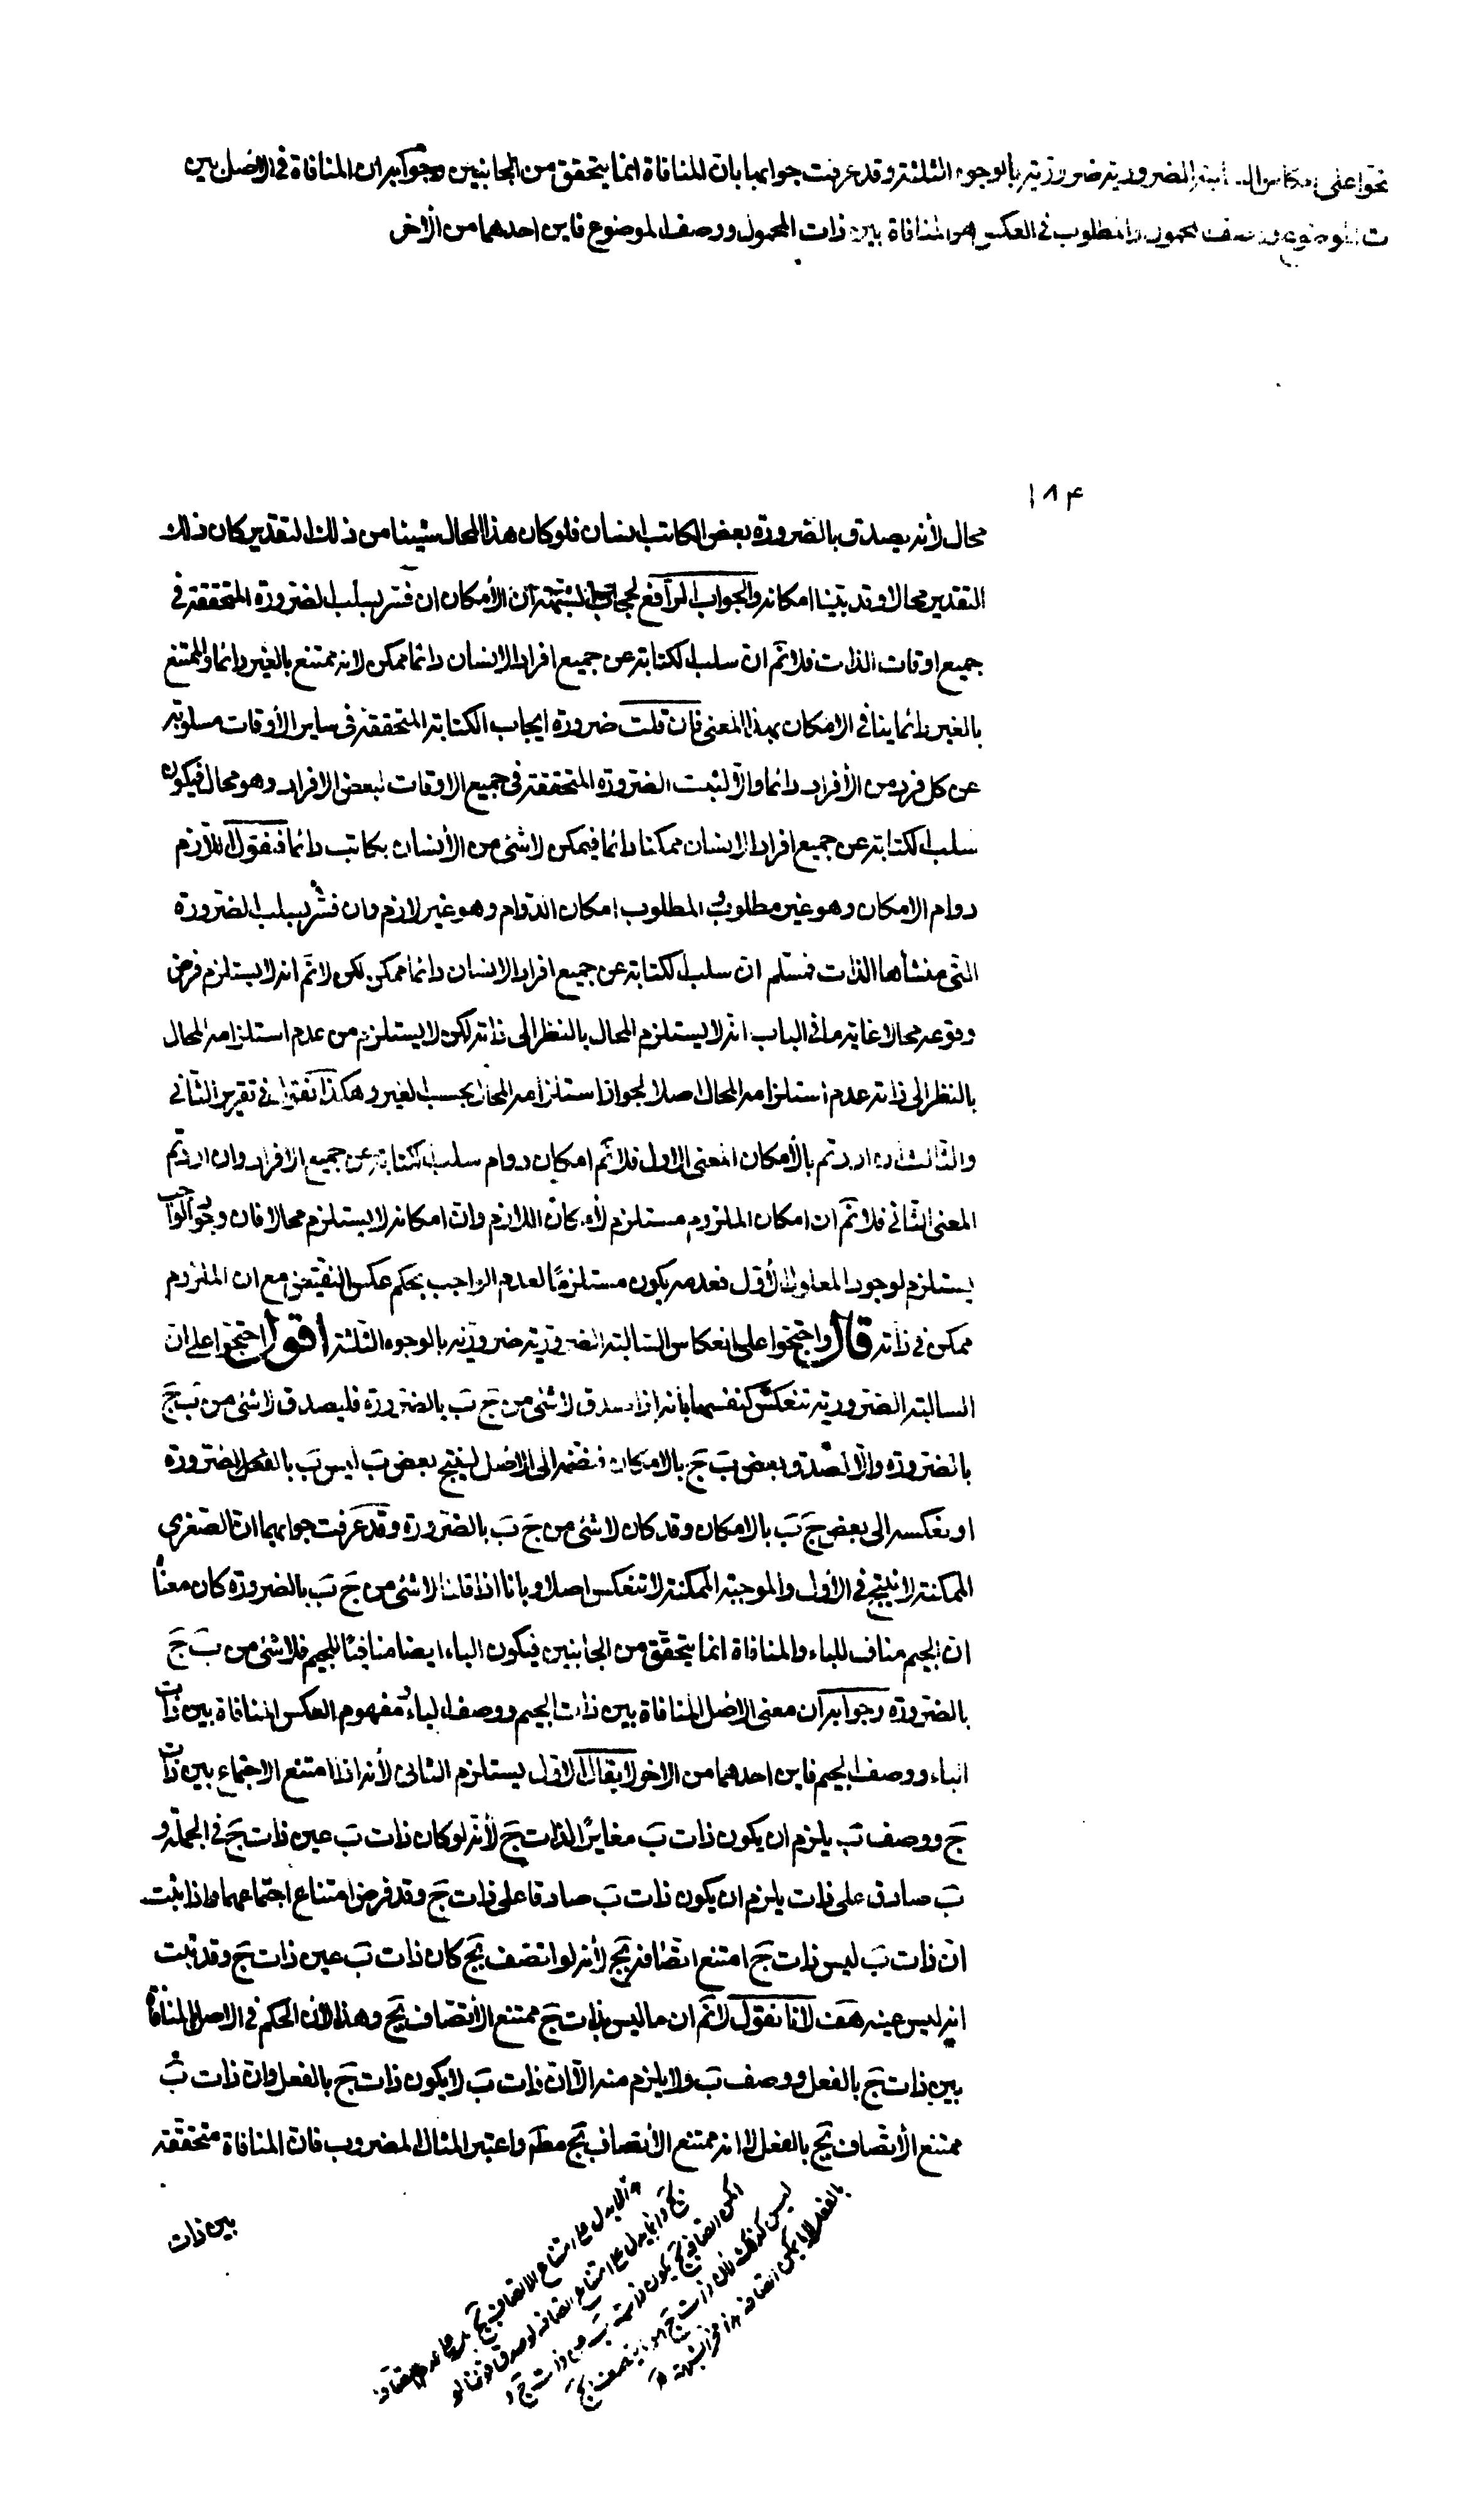 تجوا على انعكاس السالبة الضرورية ضرورية بالوجوه الثلثة وقد عرفت جوابها بان المنافاة انما يتحقق من الجانبين وجوابه ان المنافاة فى الاصل بين
ت الموضوع ووصف المحمول والمطلوب فى العكس هو المنافاة بين ذات المحمول ووصف الموضوع فاين احدهما من الأخر
١٨۴
محال لأنه يصدق بالضرورة بعض الكاتب انسان فلو كان هذا المحال شيئا من ذلك التقدير كان ذلك
التقدير محالا وقد بيّنا امكانه والجواب الرافع لحجاب الشبهة ان الأمكان ان فسّر بسلب الضرورة المتحققة فى
جميع اوقات الذات فلا نم ان سلب الكتابة عن جميع افراد الانسان دائما ممكن لانه ممتنع بالغير دائما والممتنع
بالغير دائما ينافى الامكان بهذا المعنى فان قلت ضرورة ايجاب الكتابة المتحققة فى ساير الأوقات مسلوبة
عن كل فرد من الأفراد دائما والّا لثبت الضرورة المتحققة فى جميع الاوقات لبعض الافراد وهو محال فيكون
سلب الكتابة عن جميع افراد الانسان ممكنا دائما فيمكن لا شئ من الأنسان بكاتب دائما فنقول اللازم
دوام الامكان وهو غير مطلوب والمطلوب امكان الدوام وهو غير لازم وان فسّر بسلب الضرورة
التى منشأها الذات فمسلّم ان سلب الكتابة عن جميع افراد الانسان دائما ممكن لكن لا نم انه لا يستلزم فرض
وقوعه محالا غاية ما فى الباب انه لا يستلزم المحال بالنظر الى ذاته لكن لا يستلزم من عدم استلزامه المحال
بالنظر الى ذاته عدم استلزامه المحال اصلا لجواز استلزامه المحال بحسب الغير وهكذا نقول فى تقرير الثانى
والثالث انه ان اردتم بالأمكان المعنى الاول فلا نم امكان دوام سلب الكتابة عن جميع الافراد وان اردتم
المعنى الثانى فلا نم ان امكان الملزوم مستلزم لأمكان اللازم وان امكانه لا يستلزم محالا فان وجود الواجب
يستلزم لوجود المعلول الأول فعدمه يكون مستلزمًا لعدم الواجب بحكم عكس النقيض مع ان الملزوم
ممكن فى ذاته قال واحتجوا على انعكاس السالبة الضرورية ضرورية بالوجوه الثلثة اقول احتجوا على ان
السالبة الضرورية تنعكس كنفسها بانه اذا صدق لا شئ من جَ بَ بالضرورة فليصدق لا شئ من بَ جَ
بالضرورة والّا لصدق بعض بَ جَ بالامكان فنضمه الى الاصل لينتج بعض بَ ليس بَ بالضرورة
او نعكسه الى بعض جَ بَ بالامكان وقد كان لا شئ من جَ بَ بالضرورة وقد عرفت جوابهما ان الصغرى
الممكنة لا ينتج فى الأول والموجبة الممكنة لا تنعكس اصلا وبانا اذا قلنا لا شئ من جَ بَ بالضرورة كان معناه
ان الجيم مناف للباء والمنافاة انما يتحقق من الجانبين فيكون الباء ايضا منافيًا للجيم فلا شئ من بَ جَ
بالضرورة وجوابه ان معنى الاصل المنافاة بين ذات الجيم ووصف الباء ومفهوم العكس المنافاة بين ذات
الباء ووصف الجيم فاين احدهما من الاخر لا يقال الاول يستلزم الثانى لأنه اذا امتنع الاجتماع بين ذات
جَ ووصف بَ يلزم ان يكون ذات بَ مغايرًا لذات جَ لأنه لو كان ذات بَ عين ذات جَ فى الجملة و
بَ صادق على ذات يلزم ان يكون ذات بَ صادقا على ذات جَ وقد فرض امتناع اجتماعهما واذا ثبت
ان ذات بَ ليس ذات جَ امتنع اتصافه بجَ لأنه لو اتصف بجَ كان ذات بَ عين ذات جَ وقد ثبت
انه ليس عينه هَف لانا نقول لا نم ان ما ليس بذات جَ ممتنع الأتصاف بجَ وهذا لأن الحكم فى الاصل المنافاة
بين ذات جَ بالفعل ووصف بَ ولا يلزم منه الا ان ذات بَ لا يكون ذات جَ بالفعل وان ذات بَ
ممتنع الأتصاف بجَ بالفعل لا انه ممتنع الأتصاف بجَ مطم واعتبر المثال المضروب فان المنافاة متحققة
بين ذات